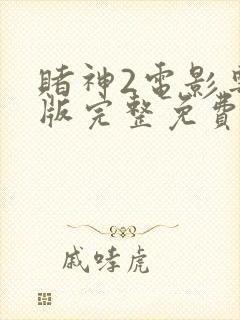 賭神2電影粵
版完整免費
戚哮虎